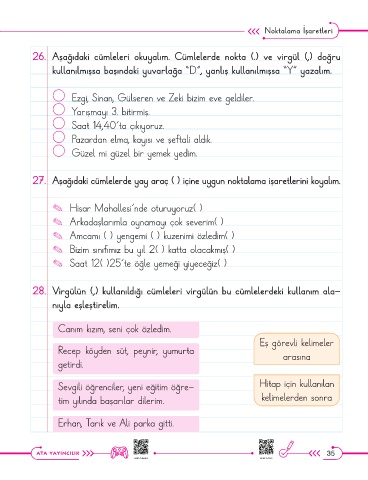 Noktalama İşaretleri
26. Aşağıdaki cümleleri okuyalım. Cümlelerde nokta (.) ve virgül (,) doğru
kullanılmışsa başındaki yuvarlağa "D", yanlış kullanılmışsa "Y" yazalım.
Ezgi, Sinan, Gülseren ve Zeki bizim eve geldiler.
Yarışmayı 3. bitirmiş.
Saat 14,40'ta çıkıyoruz.
Pazardan elma, kayısı ve şeftali aldık.
Güzel mi güzel bir yemek yedim.
27. Aşağıdaki cümlelerde yay araç ( ) içine uygun noktalama işaretlerini koyalım.
Hisar Mahallesi'nde oturuyoruz( )
Arkadaşlarımla oynamayı çok severim( )
Amcamı ( ) yengemi ( ) kuzenimi özledim( )
Bizim sınıfımız bu yıl 2( ) katta olacakmış( )
Saat 12( )25'te öğle yemeği yiyeceğiz( )
28. Virgülün (,) kullanıldığı cümleleri virgülün bu cümlelerdeki kullanım ala-
nıyla eşleştirelim.
Canım kızım, seni çok özledim.
Recep köyden süt, peynir, yumurta
getirdi.
Sevgili öğrenciler, yeni eğitim öğre-
tim yılında başarılar dilerim.
Erhan, Tarık ve Ali parka gitti.
Eş görevli kelimeler
arasına
Hitap için kullanılan
kelimelerden sonra
ATA YAYINCILIK
35